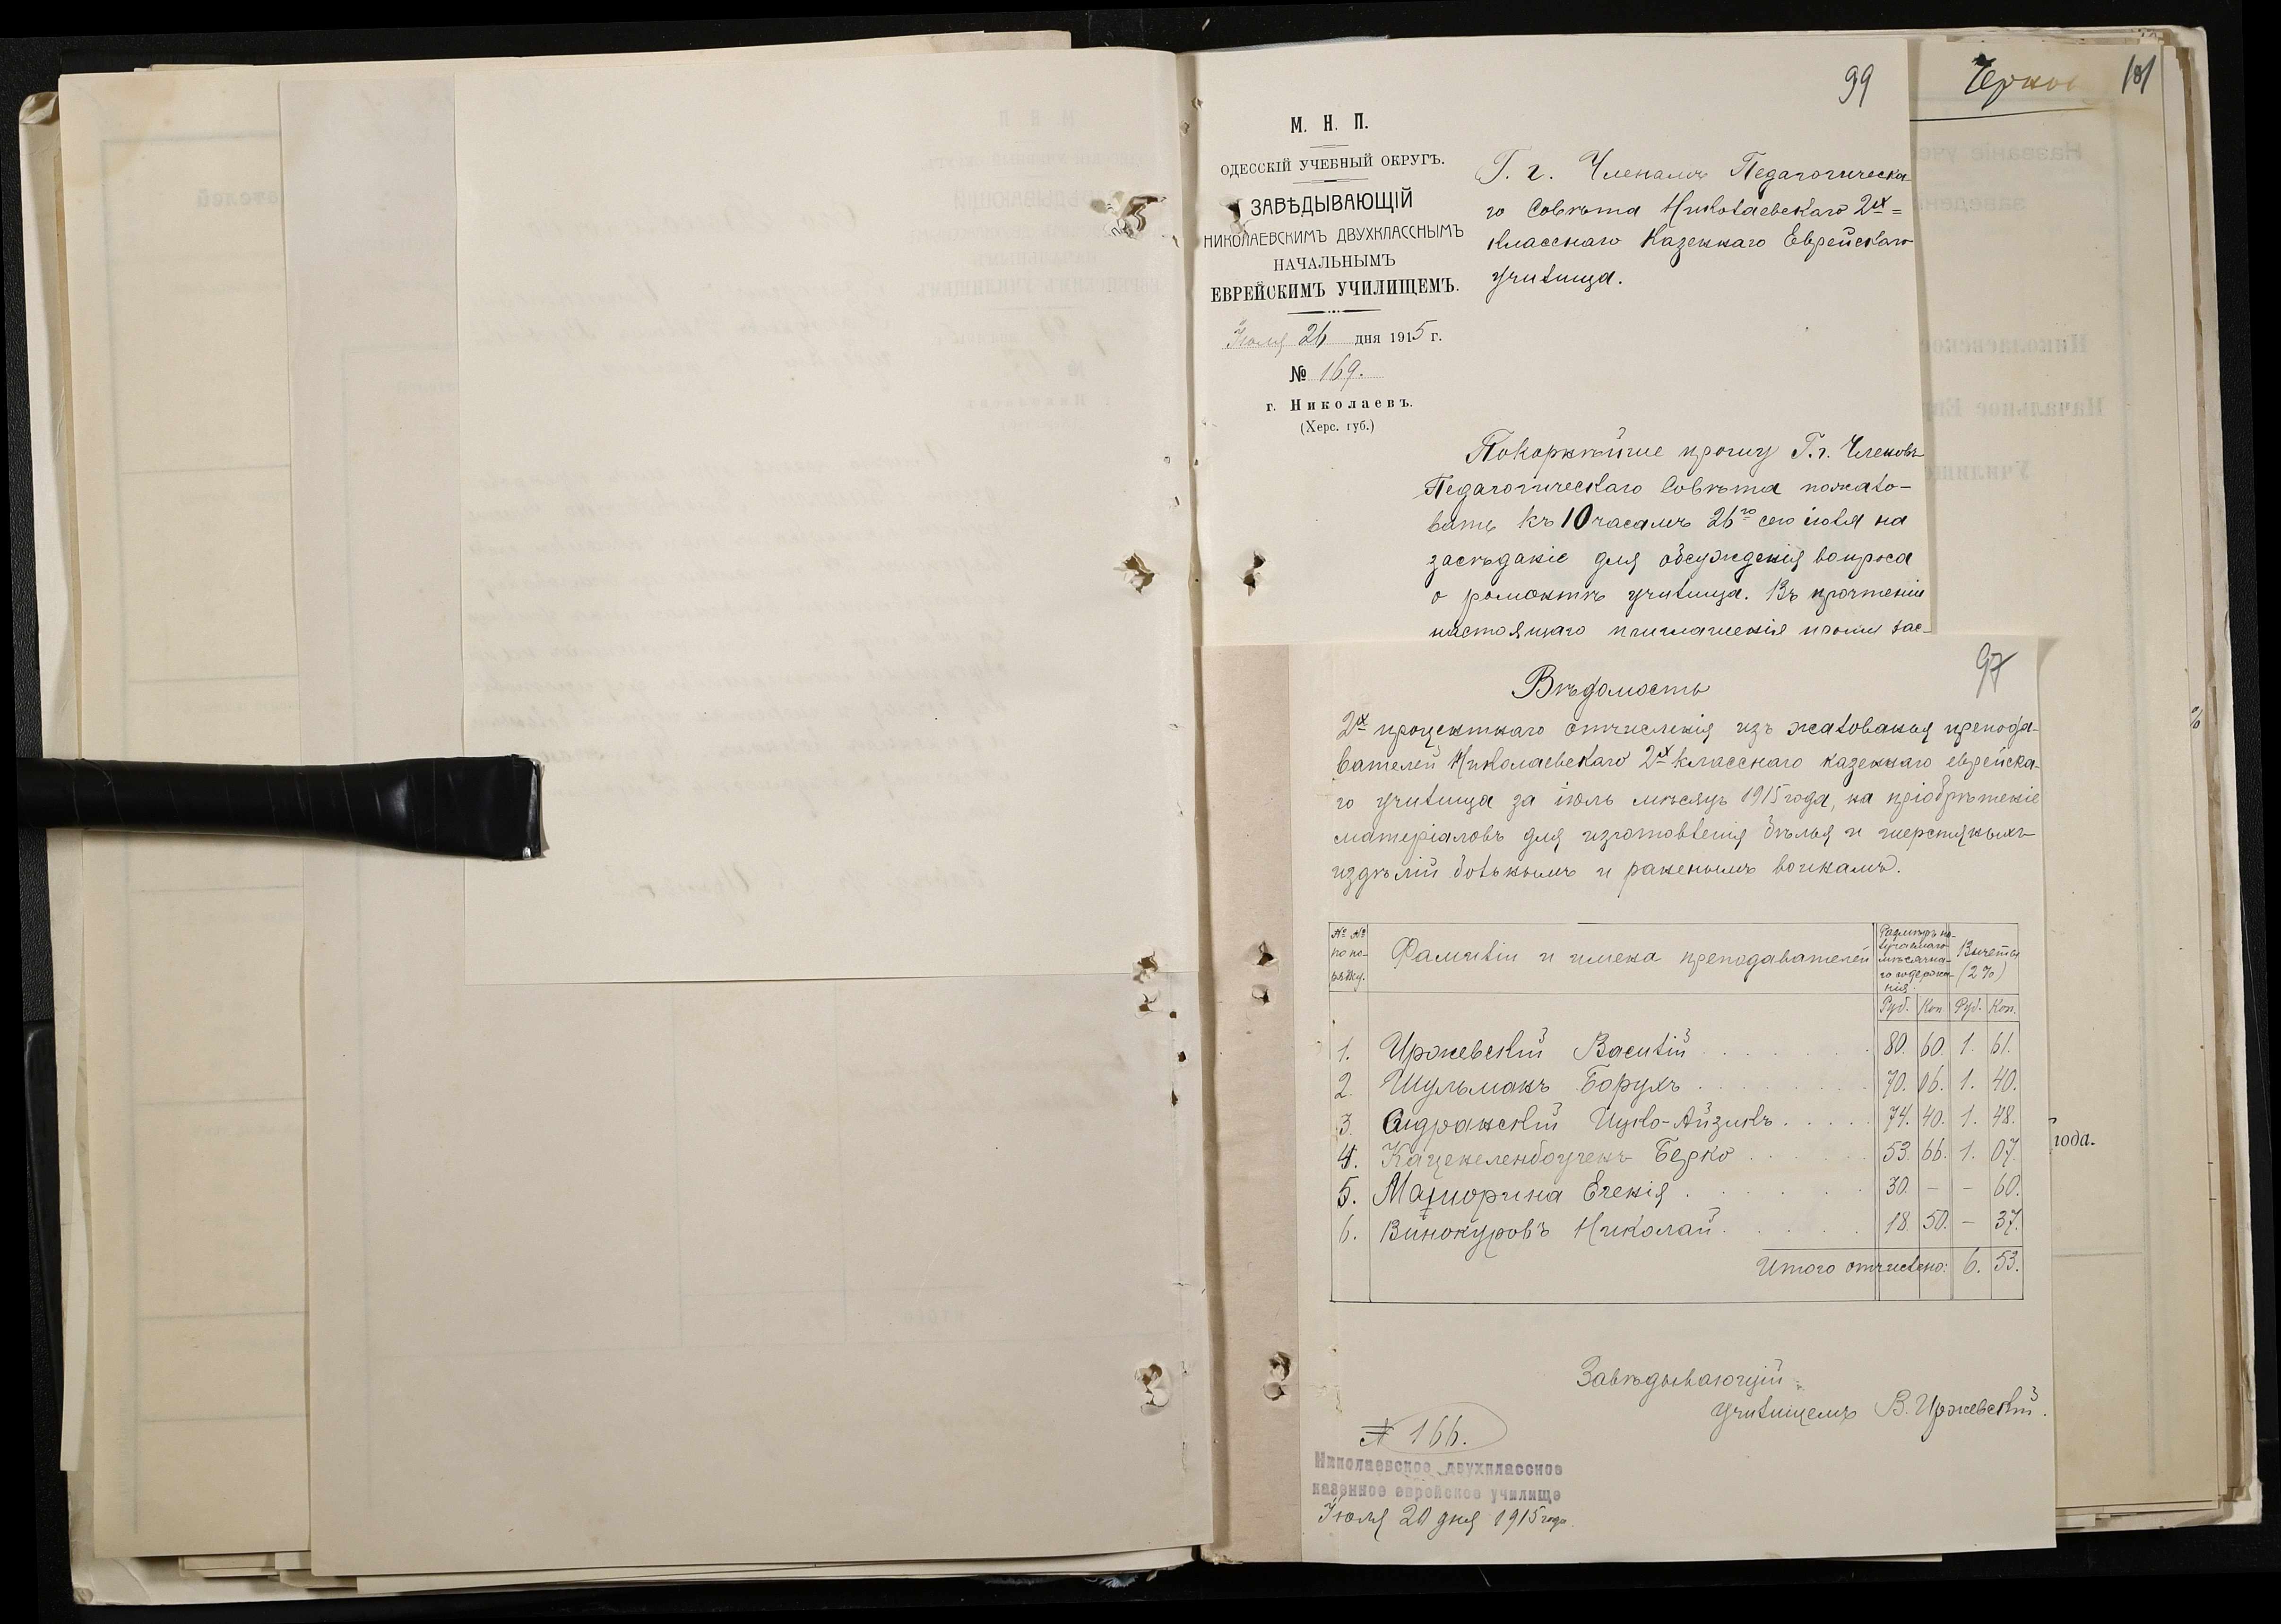 99
М. Н. П.
ОДЕССКІЙ УЧЕБНЫЙ ОКРУГЪ.
ЗАВѢДЫВАЮЩІЙ
НИКОЛАЕВСКИМЪ ДВУХКЛАССНЫМЪ
НАЧАЛЬНЫМЪ
ЕВРЕЙСКИМЪ УЧИЛИЩЕМЪ.
Іюля 26 дня 1915 г.
№ 169.
г. Николаевъ.
(Херс. губ.)
Г. г. Членамъ Педагогическа-
го Совѣта Николаевскаго 2х=
класснаго Казеннаго Еврейскаго
училища.
Покорнѣйше прошу Г. г. Членовъ
Педагогическаго Совѣта пожало-
вать къ 10 часамъ 26го сего іюля на
засѣданіе для обсужденія вопроса
о ремонтѣ училища. Въ прочтеніи
настоящаго приглашенія прошу
181
97
Вѣдомость
2х процентнаго отчисленія изъ жалованья препода-
вателей Николаевскаго 2х класснаго казеннаго еврейска-
го училища за іюль мѣсяцъ 1915 года, на пріобрѣтеніе
матеріаловъ для изготовленія бѣлья и шерстяныхъ
издѣлій больнымъ и раненымъ воинамъ.
№ № по по- рядку. Фамиліи и имена преподавателей Размѣръ по- лучаемаго мѣсячна- го содержа- нія. Вычеты (2%)
Руб. Коп. Руб. Коп.
1. Иржевскій Василій 80. 60. 1. 61.
2. Шульманъ Борухъ 70. 06. 1. 40.
3. Сидранскій Ицко-Айзикъ 74. 40. 1. 48.
4. Каценеленбоугенъ Берко 53. 66. 1. 07.
5. Евгенія 30. – – 60.
6. Винокуровъ Николай 18. 50. – 37.
Итого отчислено: 6. 53.
Завѣдывающій
училищемъ В. Иржевскій.
№ 166.
Николаевское двухклассное
казенное еврейское училище
Іюля 20 дня 1915 года.
года.